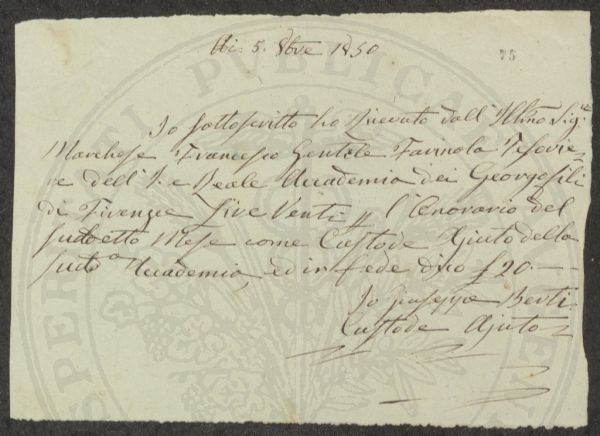 Adi 5. 8bre 1850
75
Io sottoscritto ho Ricevuto dall' Illmo Sigre
Marchese Francesco Gentile Farinola Tesorie=
re dell' I. e Reale Accademia dei Georgofili
di Firenze Lire Venti p l' Onorario del
sudoetto Mese come Custode Ajuto della
sudta Accademia, ed in fede dico £ 20 —
Io Giuseppe Berti
Custode Ajuto